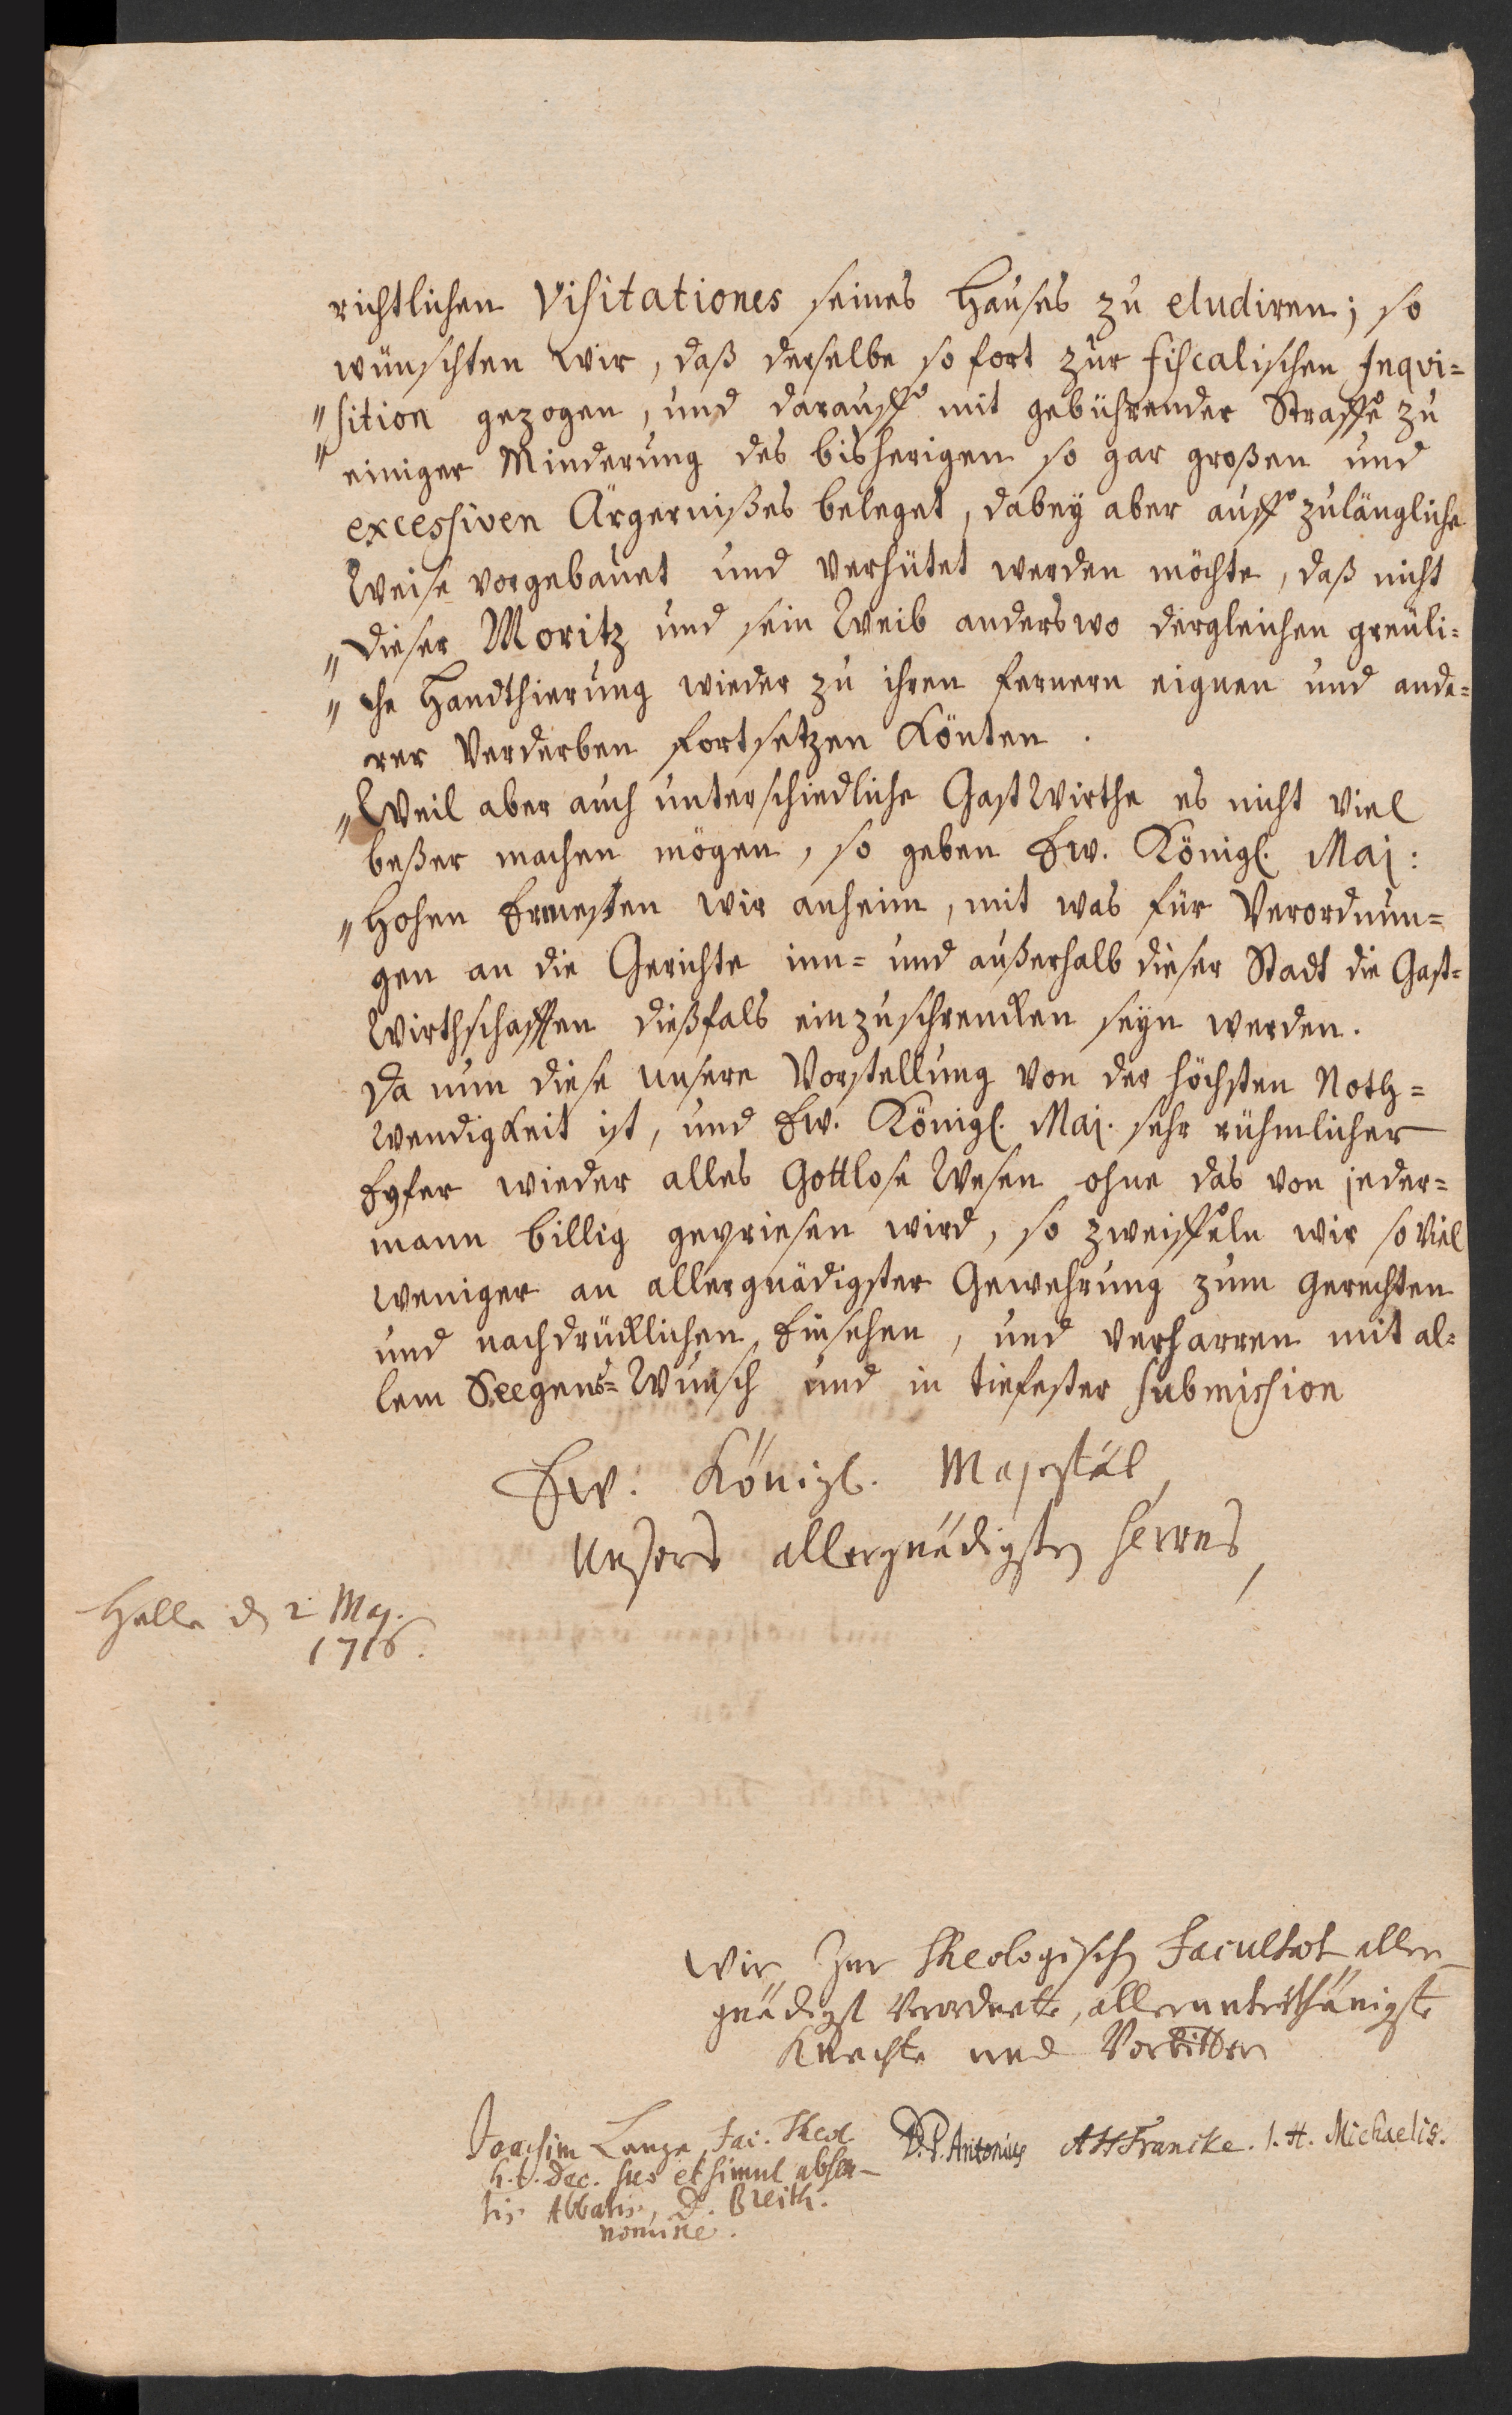 richtlichen Visitationes seines Hauses zu eludiren; so
wünschten wir, daß derselbe so fort zur fiscalischen Inqvi=
"sition gezogen, und darauff mit gebührender Straffe zu
"einiger Minderung des bisherigen so gar großen und
excessiven Ärgernißes beleget, dabey aber auff zulängliche
Weise vorgebauet und verhütet werden möchte, daß nicht
"dieser Moritz und sein Weib anderswo dergleichen greuli=
"che Handthierung wieder zu ihren fernern eignen und ande=
rer Verderben fortsetzen könten.
"Weil aber auch unterschiedliche GastWirthe es nicht viel
beßer machen mögen, so geben Ew. Königl. Maj:
"Hohen Ermesten wir anheim, mit was für Verordnun=
gen an die Gerichte inn= und außerhalb dieser Stadt die Gast=
Wirthschafften dießfals einzuschrencken seyn werden.
Da nun diese unsere Vorstellung von der höchsten Noth=
wendigkeit ist, und Ew. Königl. Maj. sehr rühmlicher
Eyfer wieder alles Gottlose Wesen ohne das von jeder=
mann billig gepriesen wird, so zweiffeln wir so viel
weniger an allergnädigster Gewehrung zum gerechten
und nachdrücklichen Einsehen, und verharren mit al=
lem Seegens=Wunsch und in tiefester submission
Ew. Königl. Majestät,
Unsers allergnädigsten Herrns,
Halle d 2 Maj.
1716.
Wir zur Theologischen Facultät aller=
gnädigst Verordnete, allerunterthänigste
Knechte und Vorbitter
Joachim Lange, Fac. Theol.
h.t. Dec. suo et simul absen-
tis Abbatis, D. Breith.
nomine.
D. P. Antonius AHFrancke. I. H. Michaelis.